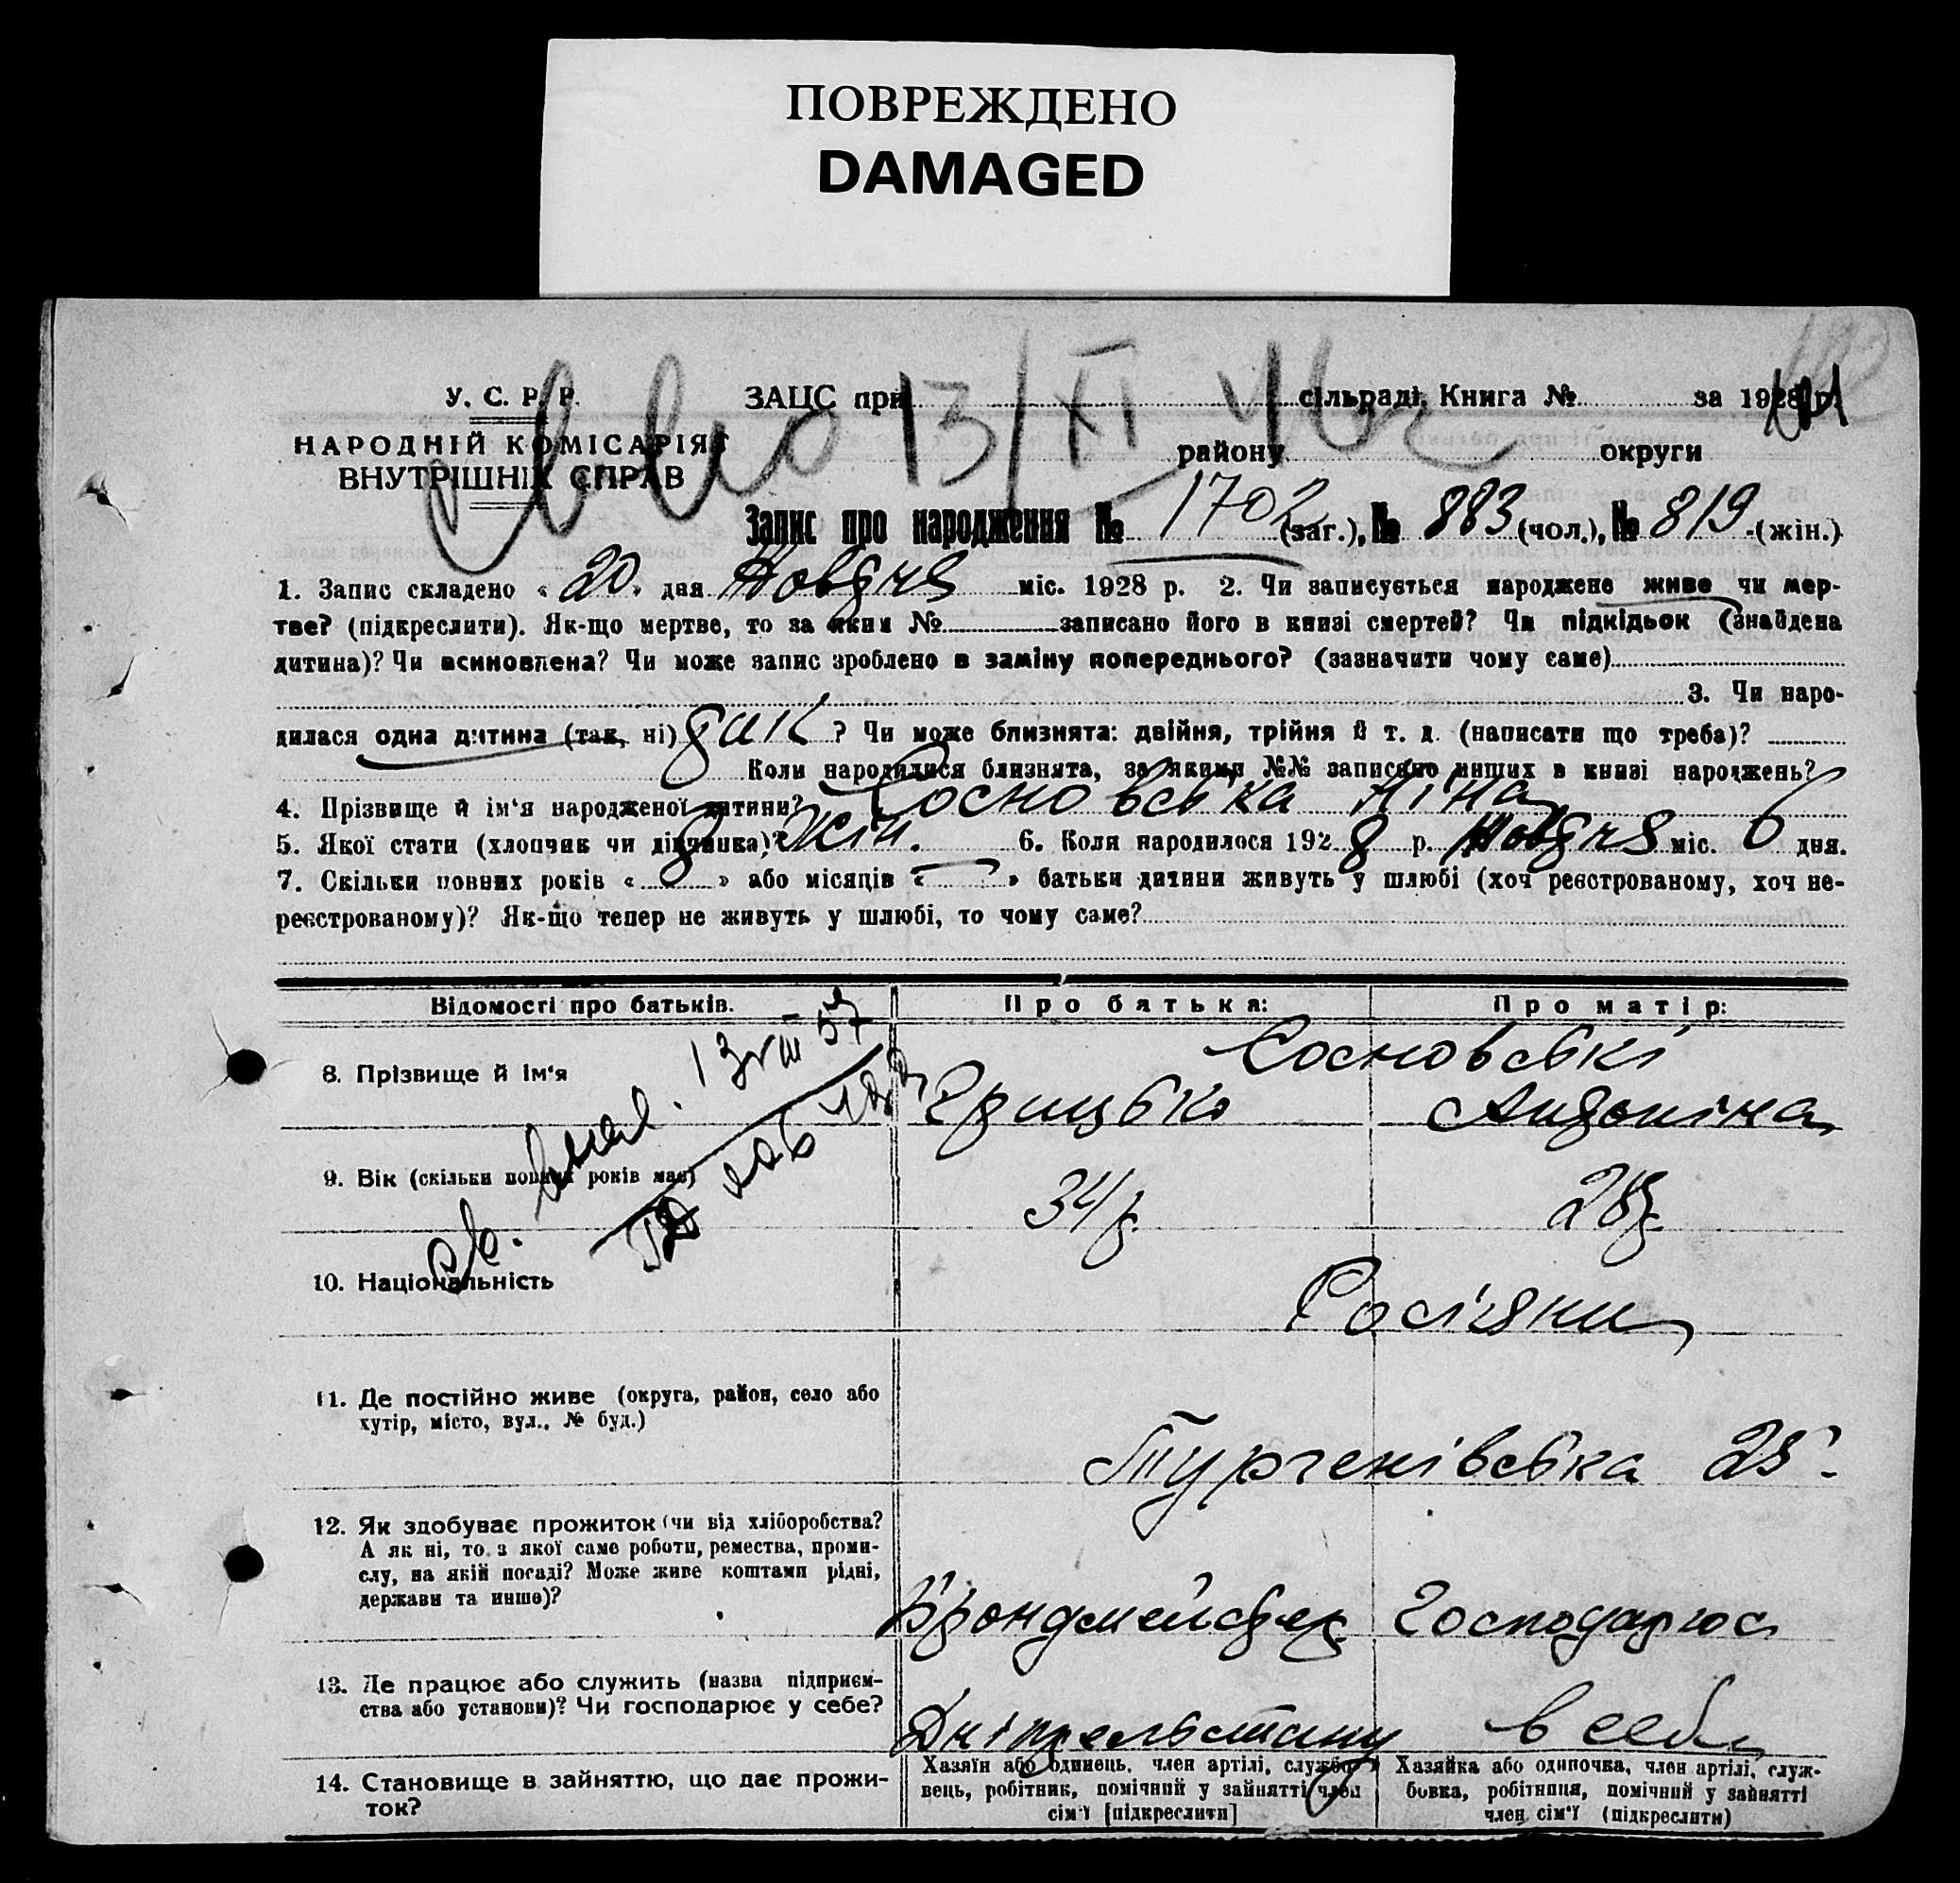 ПОВРЕЖДЕНО
DAMAGED
У. С. Р. Р.
НАРОДНІЙ КОМІСАРІЯТ
ВНУТРІШНІХ СПРАВ
13/XI
ЗАЦС при сільраді, Книга № за 1928 р.
району округи
Запис про народження № 1702 (заг.), № 883 (чол.), № 819 (жін.)
1. Запис складено « 20 » дня Жовтня міс. 1928 р. 2. Чи записується народжене живе чи мер-
тве? (підкреслити). Як-що мертве, то за яким № записано його в книзі смертей? Чи підкідьок (знайдена
дитина)? Чи всиновлена? Чи може запис зроблено в заміну попереднього? (зазначити чому саме)
3. Чи наро-
дилася одна дитина (так, ні) так ? Чи може близнята: двійня, трійня й т. д. (написати що треба)?
Коли народилися близнята, за якими №№ записано инших в книзі народжень?
4. Прізвище й ім'я народженої дитини? Сосновська Ніна
5. Якої стати (хлопчик чи дівчинка)? Жін. 6. Коли народилося 192 8 р. Жовтня міс. 6 дня.
7. Скільки повних років « 8 » або місяців « » батьки дитини живуть у шлюбі (хоч реєстрованому, хоч не-
реєстрованому)? Як-що тепер не живуть у шлюбі, то чому саме?
Відомості про батьків. Про батька: Про матір:
Сосновські
8. Прізвище й ім'я Грицько Антоніна
9. Вік (скільки повних років має) 34 р. 28 р.
10. Національність Росіяни
11. Де постійно живе (округа, район, село або
хутір, місто, вул., № буд.)
Тургенівська 25
12. Як здобуває прожиток (чи від хліборобства?
А як ні, то з якої саме роботи, ремества, проми-
слу, на якій посаді? Може живе коштами рідні,
держави та инше)?
Брондмейстер Господарює
13. Де працює або служить (назва підприєм-
ства або установи)? Чи господарює у себе?
Дніпрельстану в себе
14. Становище в зайняттю, що дає прожи-
ток?
Хазяїн або одинець, член артілі, службо-
вець, робітник, помічний у зайнятті член
сім'ї [підкреслити]
Хазяйка або одиночка, член артілі, служ-
бовка, робітниця, помічний у зайнятті
член сім'ї (підкреслити)